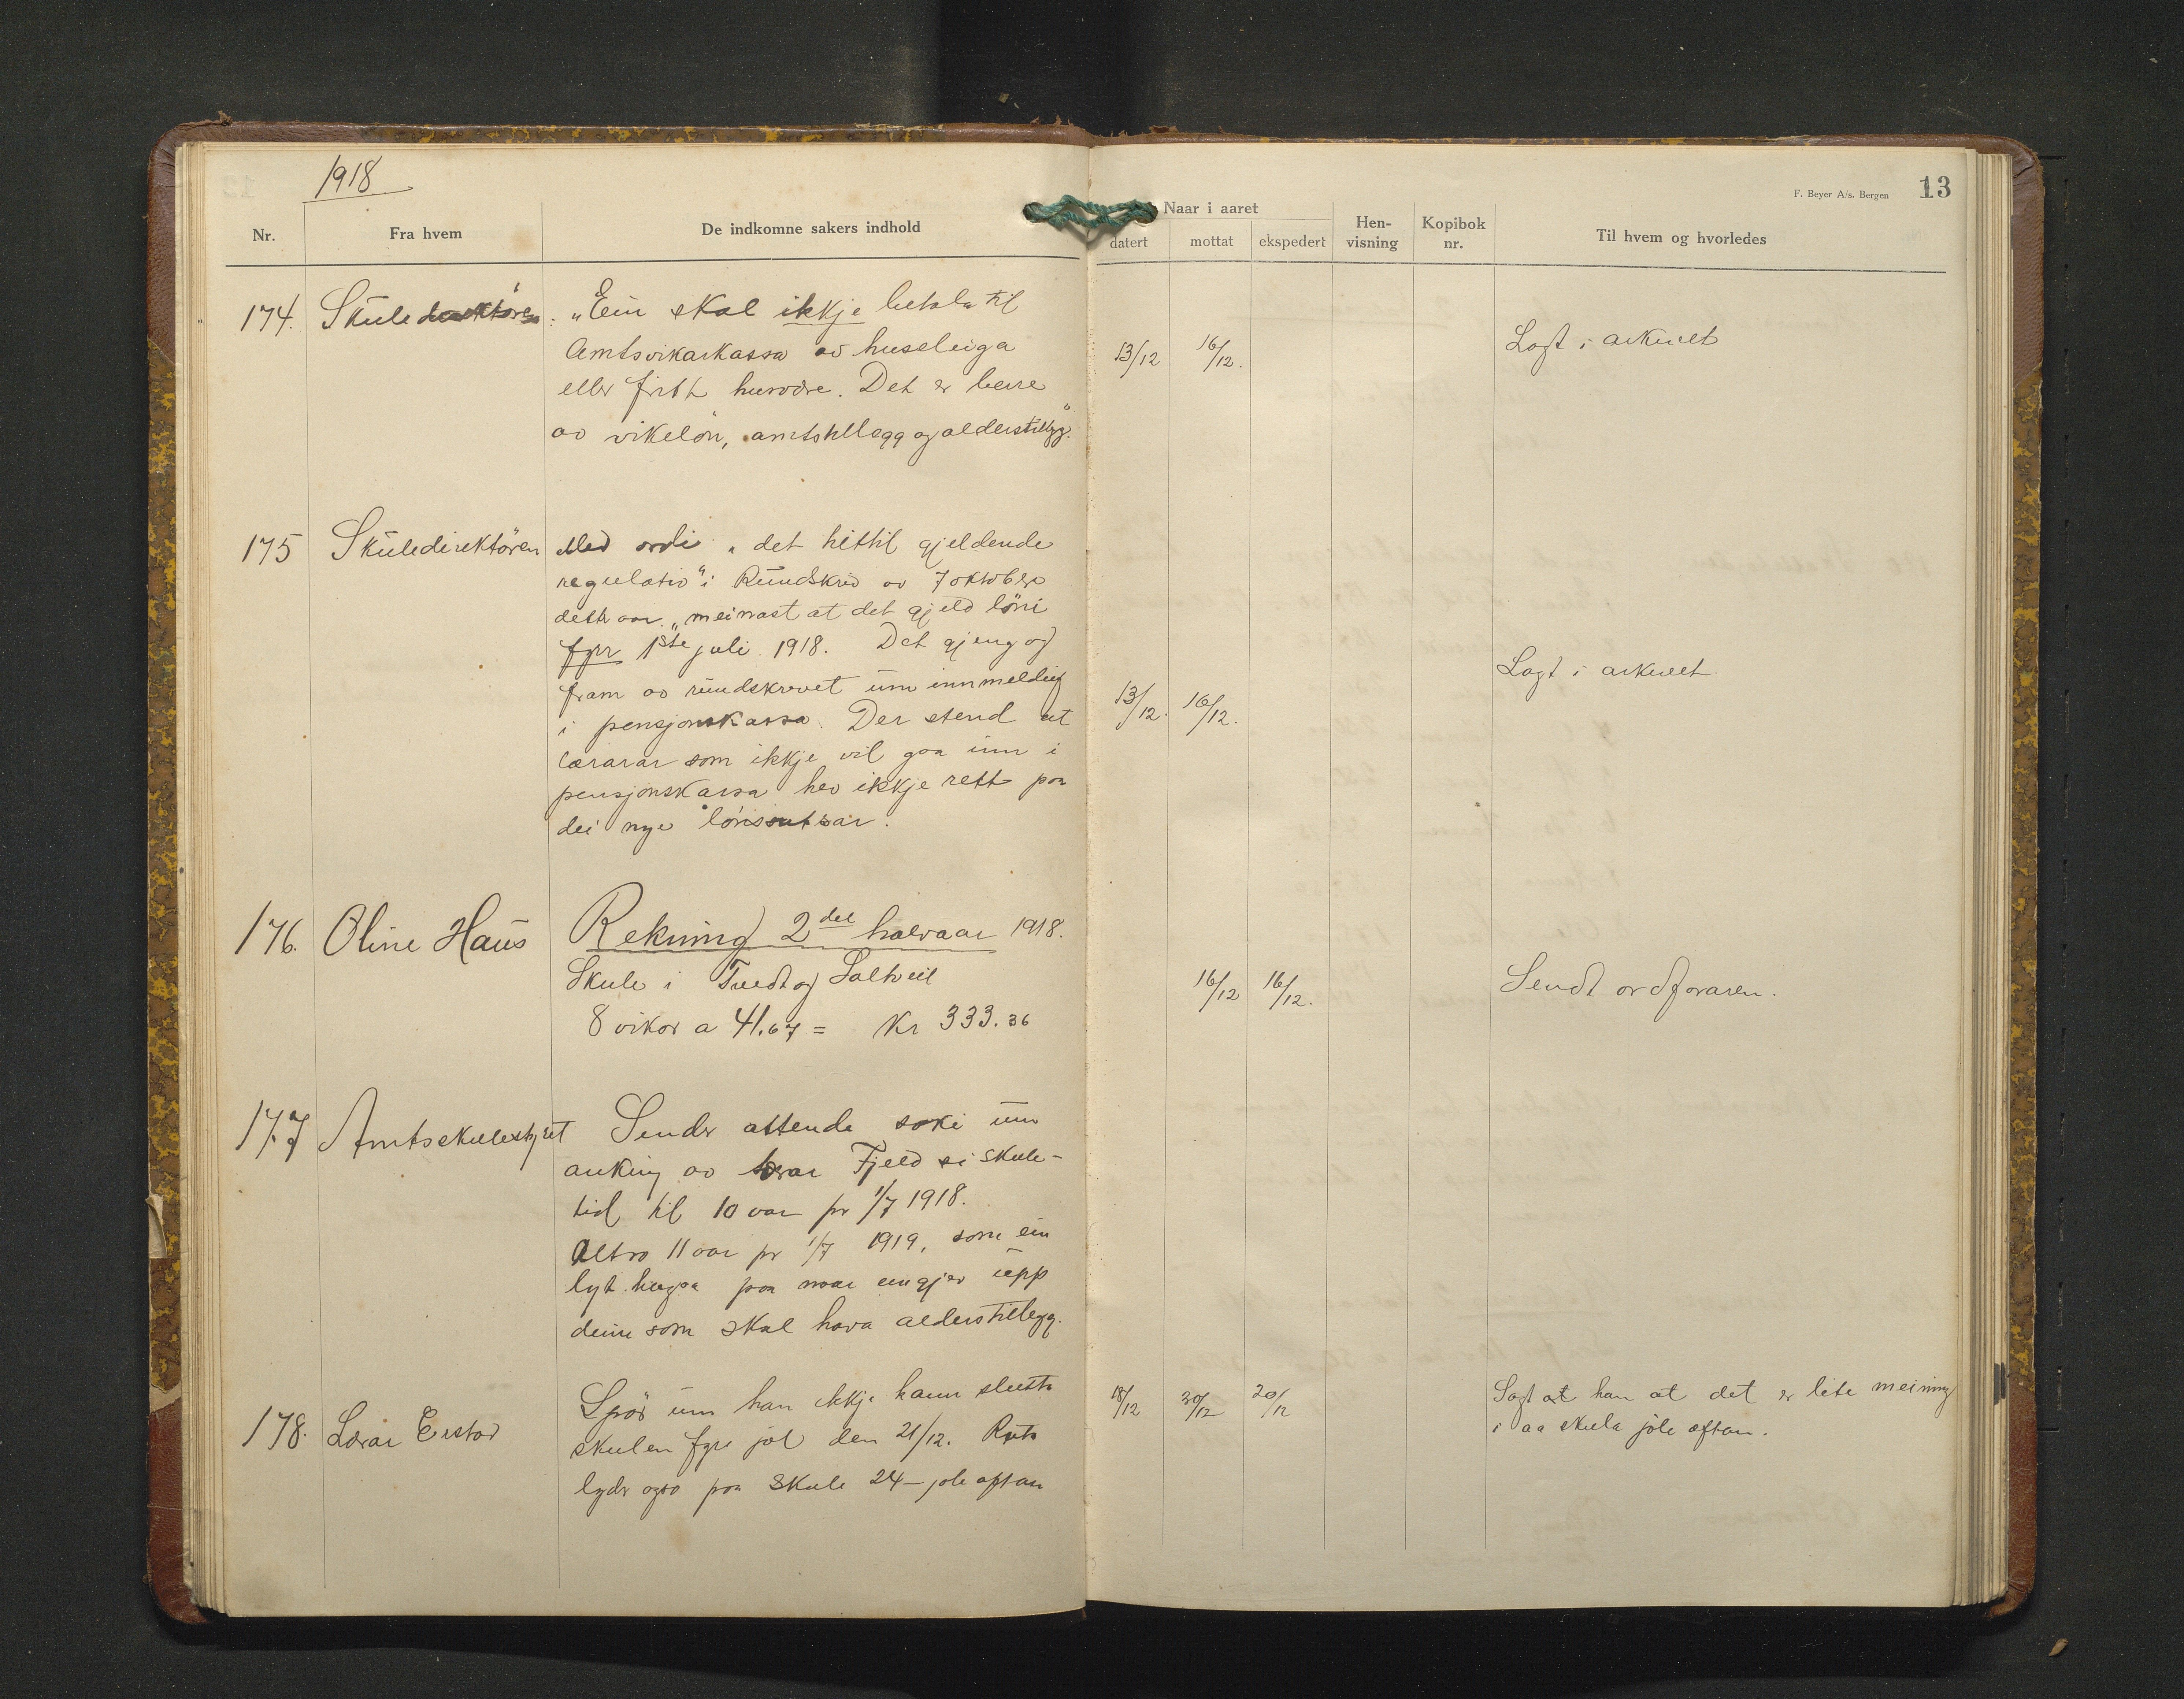 1918
Nr.
Fra hvem
De indkomne sakers indhold
Naar i aaret
datert
mottat
ekspedert
Hen-
visning
Kopibok
nr.
Til hvem og hvorledes
F. Beyer A/s. Bergen
13
174. Skuledirektören. „Ein skal ikkje betala til
Amtsvikarkassa av huseleiga
eller fritt husvære. Det er berre
av vikelön, amtstillegg og alderstillegg."
13/12 16/12. Lagt i arkivet
175 Skuledirektören Med ordi „det hittil gjeldende
regulativ" i Rundskriv av 7 oktober
dette aar „meinast at det gjeld löni
fyrr 1ste juli 1918. Det gjeng og
fram av rundskrivet um innmelding
i pensjonskassa. Der stend at
lærarar som ikkje vil gaa inn i
pensjonskassa hev ikkje rett paa
dei nye lönssatsar.
13/12. 16/12. Lagt i arkivet.
176. Oline Haus Rekning 2det halvaar 1918.
Skule i Tvedt og Saltveit
8 vikor a 41.67 = Kr 333.36
16/12 16/12. Sendt ordföraren.
177 Amtsskulestyret Sender attende saki um
auking av lærar Fjeld si skule-
tid til 10 aar pr 1/7 1918.
Altso 11 aar pr 1/7 1919, som ein
lyt hugsa paa naar ein gjer upp
deim som skal hava alderstillegg.
178. Lærar Erstad Spör um han ikkje kann slutta
skulen fyre jol den 21/12. Ruta
lyder ogso paa skule 24 – jole aftan
18/12 30/12 20/12 Sagt at han at det er lite meining
i aa skula jole aftan.